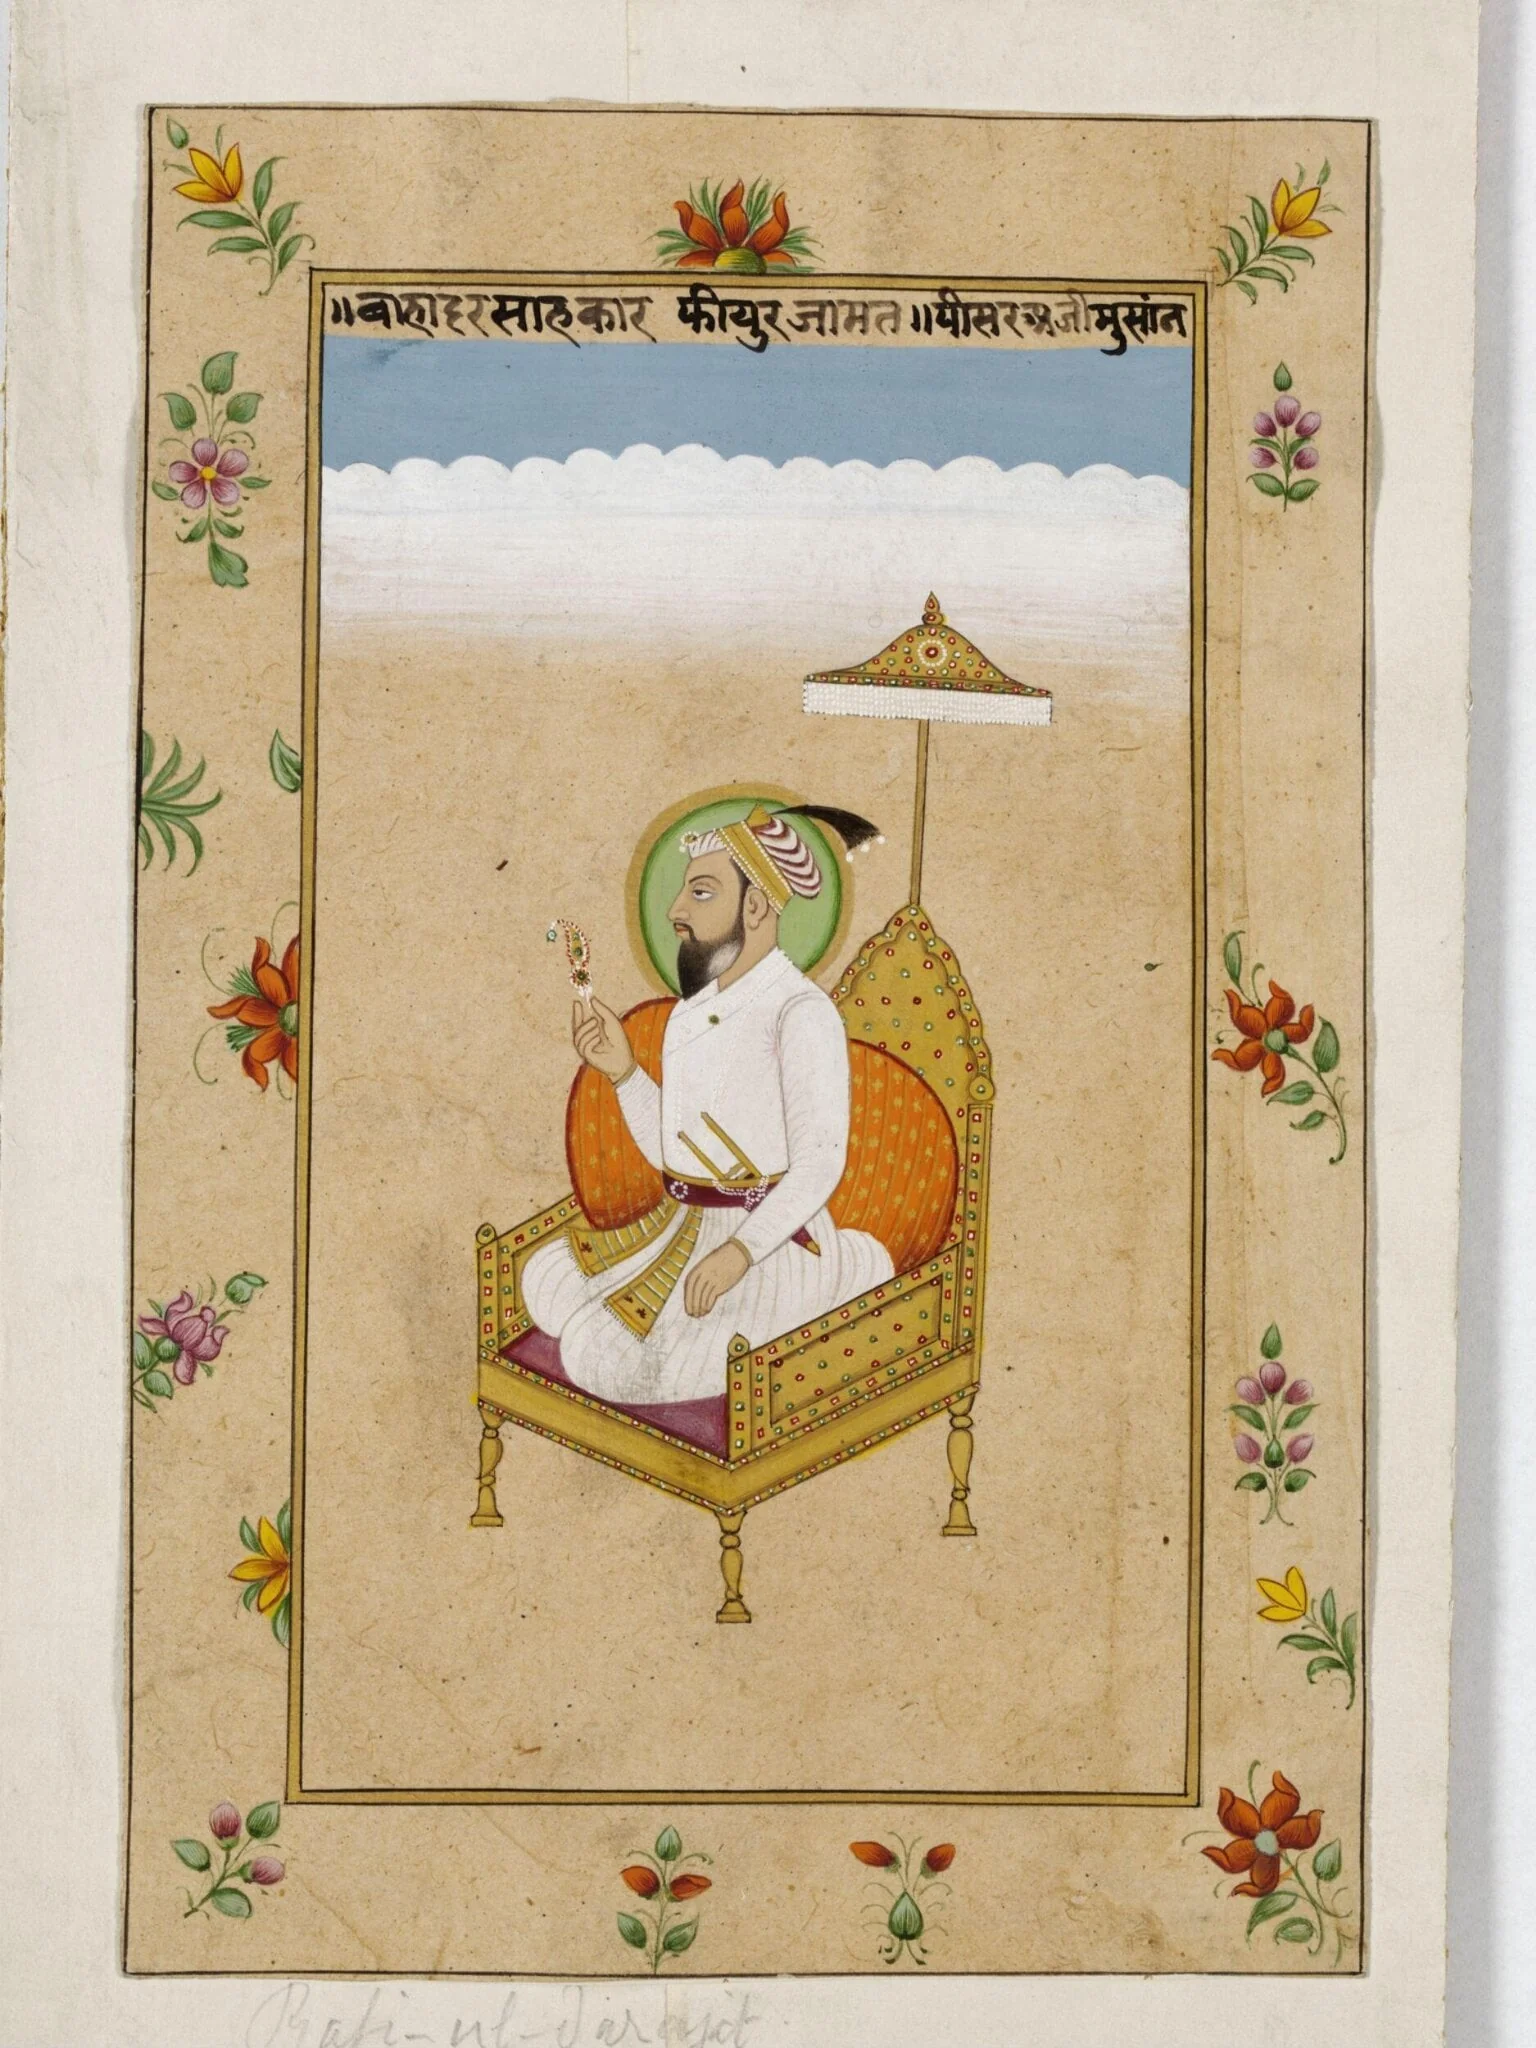 ॥बाहादरसाहकार फीयुरजामत॥पीसरअजीमुसांन
Rafi-ul-Darajat